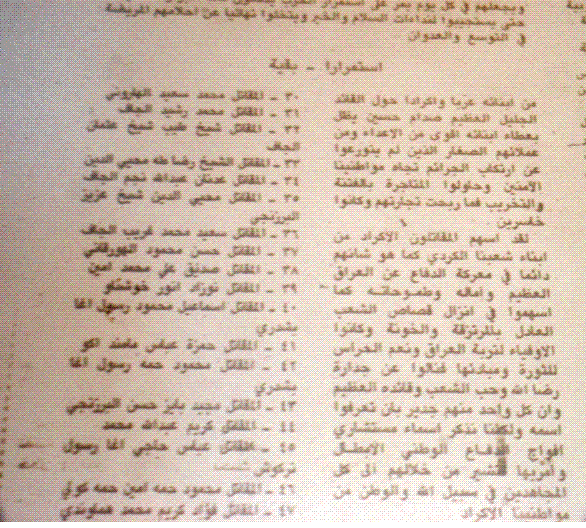 ويجعلهم في كل يوم يمر على استمرار الحرب
حتى يستجيبوا لنداءات السلام والخير ويتخلوا نهائيا عن احلامهم المريضة
في التوسع والعدوان
استمرارا - بقية
من ابنائه عربا واكرادا حول القائد
الجليل العظيم صدام حسين يظل
بعطاء ابنائه اقوى من الاعداء ومن
عملائهم الصغار الذين لم يتورعوا
عن ارتكاب الجرائم تجاه مواطنينا
الامنين وحاولوا المتاجرة بالفتنة
والتخريب فما ربحت تجارتهم وكانوا
خاسرين
لقد اسهم المقاتلون الاكراد من
ابناء شعبنا الكردي كما هو شانهم
دائما في معركة الدفاع عن العراق
العظيم وامانه وطموحاته كما
اسهموا في انزال قصاص الشعب
العادل بالمرتزقة والخونة وكانوا
الاوفياء لتربة العراق ونعم الحراس
للثورة ومبادئها فنالوا عن جدارة
رضا الله وحب الشعب وقائده العظيم
وان كل واحد منهم جدير بان تعرفوا
اسمه ولكننا نذكر اسماء مستشاري
افواج الدفاع الوطني الابطال
وأمريها نشير من خلالهم الى كل
المجاهدين في سبيل الله والوطن من
مواطنينا الاكراد
٣٠ - المقاتل محمد سعيد الهاروني
٣١ - المقاتل محمد رشيد الجاف
٣٢ - المقاتل شيخ طيب شيخ عثمان
الجاف
٣٣ - المقاتل الشيخ رضا طه محيي الدين
٣٤ - المقاتل عدنان عبدالله نجم الجاف
٣٥ - المقاتل محيي الدين شيخ عزيز
البرزنجي
٣٦ - المقاتل سعيد محمد غريب الجاف
٣٧ - المقاتل حسن محمود الهورماني
٣٨ - المقاتل صديق علي محمد امين
٣٩ - المقاتل نوزاد انور خوشناو
٤٠ - المقاتل اسماعيل محمود رسول اغا
بشدري
٤١ - المقاتل حمزة عباس مامند اكو
٤٢ - المقاتل محمود حمه رسول اغا
بشدري
٤٣ - المقاتل مجيد بايز حسن البرزنجي
٤٤ - المقاتل كريم عبدالله محمد
٤٥ - المقاتل عباس حاجي اغا رسول
تركوش
٤٦ - المقاتل محمود حمه امين حمه كوتي
٤٧ - المقاتل فؤاد كريم محمد هماوندي